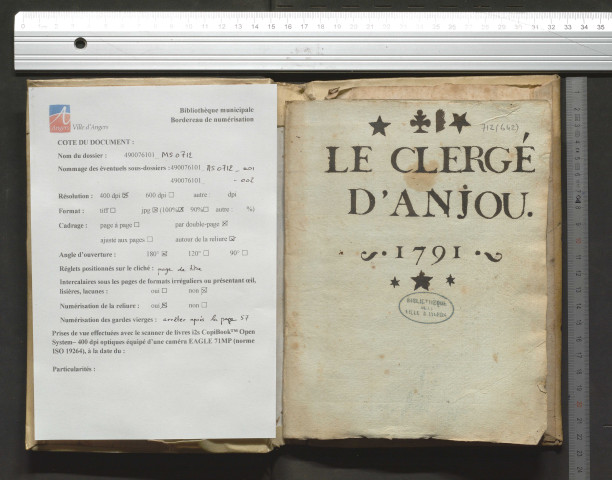 Bibliothèque municipale
Bordereau de numérisation
Angers Ville d'Angers
COTE DU DOCUMENT :
Nom du dossier : 490076101_ MS 0712
Nommage des éventuels sous-dossiers : 490076101_ MS 0712_001
490076101_ -002
Résolution : 400 dpi ☒ 600 dpi ☐ autre dpi
Format : tiff ☐ jpg ☒ (100%☒ 90%☐ autre %)
Cadrage : page à page ☐ par double-page ☒
ajusté aux pages ☐ autour de la reliure ☒
Angle d'ouverture : 180° ☒ 120° ☐ 90° ☐
Réglets positionnés sur le cliché : page de titre
Intercalaires sous les pages de formats irréguliers ou présentant œil,
lisières, lacunes : oui ☐ non ☒
Numérisation de la reliure : oui ☒ non ☐
Numérisation des gardes vierges : arrêter après la page 57
Prises de vue effectuées avec le scanner de livres i2s CopiBook™ Open
System– 400 dpi optiques équipé d'une caméra EAGLE 71MP (norme
ISO 19264), à la date du :
Particularités :
712 (642)
LE CLERGÉ
D'ANJOU.
1791
BIBLIOTHÈQUE
DE LA
VILLE D'ANGERS